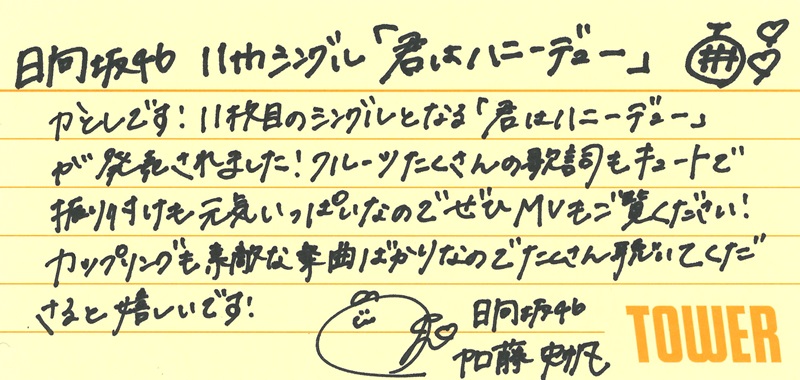 日向坂46 11thシングル「君はハニーデュー」
かとしです！11枚目のシングルとなる「君はハニーデュー」
が発売されました！フルーツたくさんの歌詞もキュートで
振り付けも元気いっぱいなのでぜひMVもご覧ください！
カップリングも素敵な楽曲ばかりなのでたくさん聴いてくだ
さると嬉しいです！
日向坂46
加藤史帆
TOWER